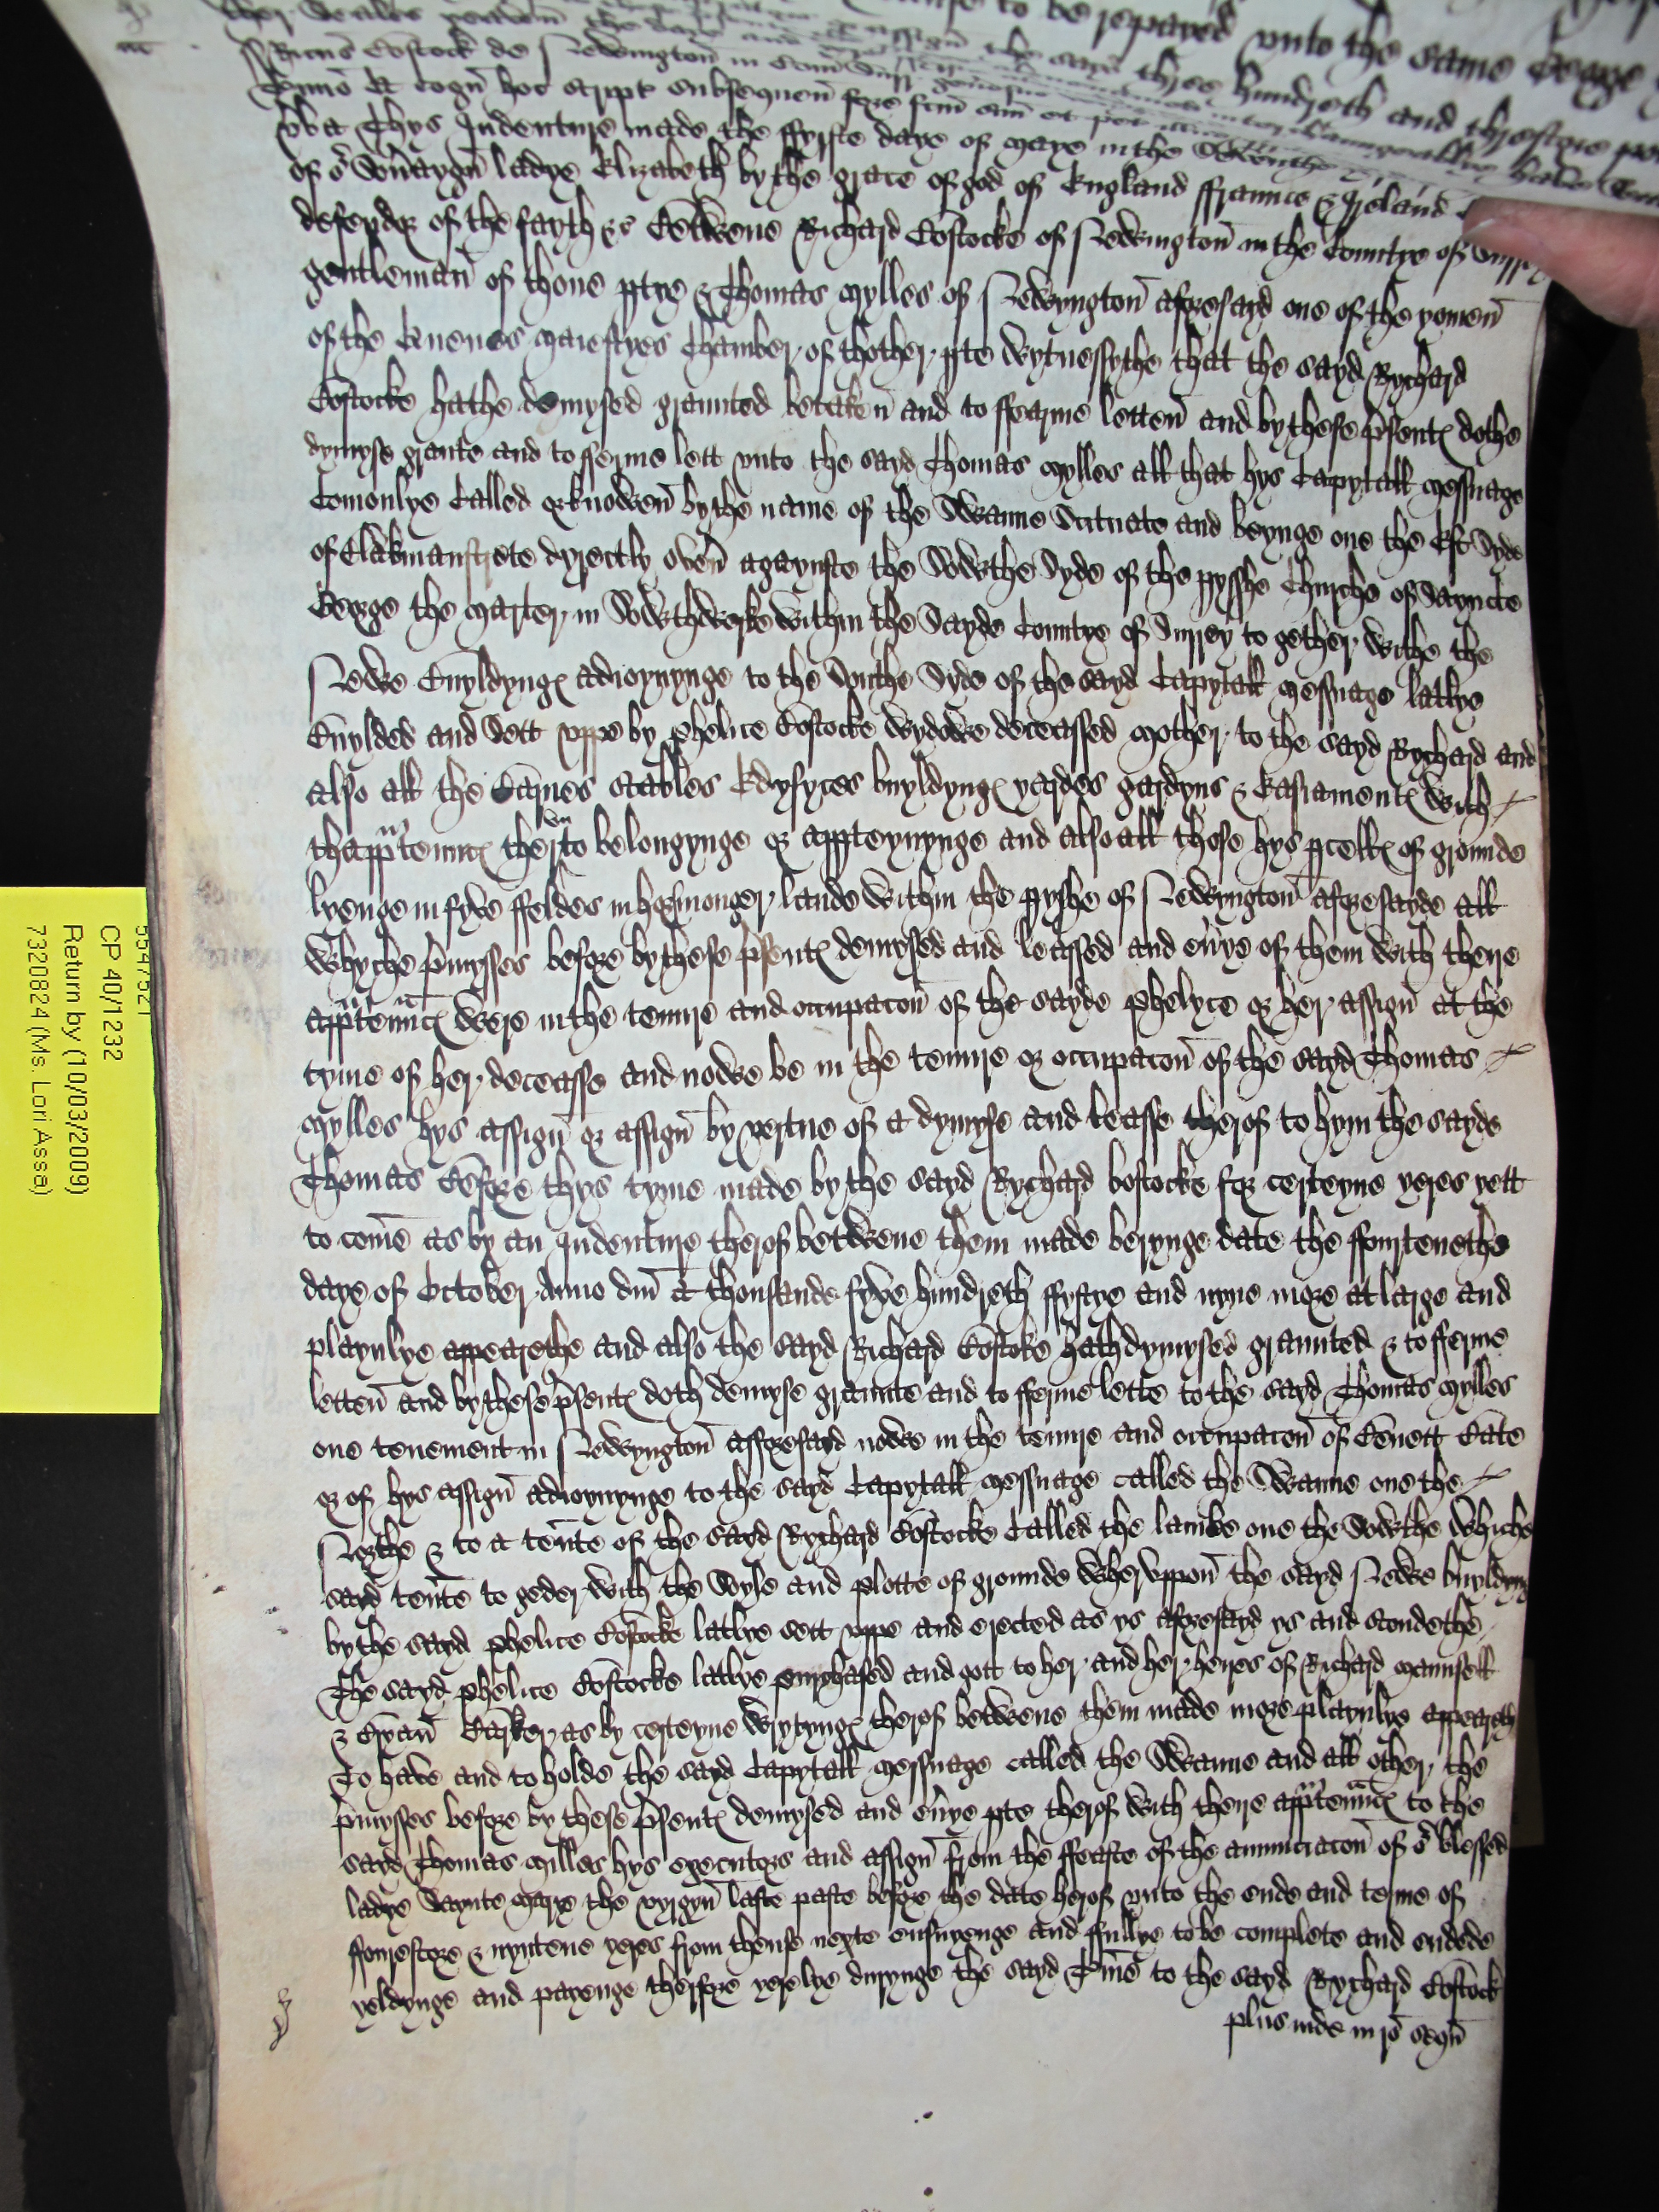 to be repayed unto the same George
the sayd three hundreth and threscore
Ricus Bostock de Newington in Com Surr
hoc script subsequen
This Indenture made the ffyrste daye of maye in the
of o' Soveraygn ladye Elizabeth by the grace of god of England ffraunce & Ireland
defend of the fayth &c Betwene Richard Bostocke of Newington in the Countye of Surrey
gentleman of thone ptye & Thomas Mylles of Newyngton aforesayd one of the yomen
of the Quenes maiestyes Chamber of thother pte wytnessythe that the sayd Rychard
Bostocke hathe demysed graunted betaken and to ffearme letten and by these psent dothe
dymyse grante and to fferme lett unto the sayd Thomas Mylles all that hys Capytall messuage
Comonlye Called or knowen by the name of the Swanne Scituate and beynge one the Est Syde
of Blakmanstrete dyrectly oven agaynste the Sowthe Syde of the pysshe Churche of Sayncte
George the marter in Sowthwerke within the Sayde Countye of Surrey to gether withe the
Newe Buyldyng adioynynge to the Southe Syde of the sayd Capytall messuage latlye
Buylded and Sett uppe by phelice Bostocke wydowe deceassed mother to the sayd Rychard and
also all the Barnes stables Edyfyces buyldyng yardes gardyns & Easiament with
thapptennc ther un to belongynge or appteynynge and also all those hys pcell of grounde
lyenge in fyve ffeldes in horsmonger lande within the pyshe of Newyngton aforesayde all
whyche pmysses before by these psent demysed and leassed and evye of them with there
apptennc were in the tenure and occupacon of the sayde phelyce or her assign at the
tyme of her deceasse and nowe be in the tenure or occupacon of the sayd Thomas
Mylles hys assign or assign by vertue of a dymyse and leasse therof to hym the sayde
Thomas Before thys tyme made by the sayd Rychard bostocke for certeyne yeres yett
to come as by an Indenture therof betwene them made berynge date the ffourtenethe
daye of October Anno dni a thousande fyve hundreth ffyftye and nyne more at large and
playnlye appearethe and also the sayd Richard Bostoke hath dymysed graunted & to fferme
letten and by these psent doth demyse graunte and to fferme lette to the sayd Thomas Mylles
one tenement in Newyngton afforesayd nowe in the tenure and occupacon of Benett Bate
or of hys assign adioynynge to the sayd Capytall messuage called the Swanne one the
Northe & to a tente of the sayd Rychard Bostocke Called the lambe one the Sowthe whiche
sayd tente to geder with the Soyle and plotte of grounde wheruppon the sayd Newe buyldyng
by the sayd phelice Bostocke latlye sett uppe and erected as ys aforesayd ys and stondethe
The sayd phelice Bostocke latlye purchased and gott to her and her heires of Richard maunsell
& Barker as by certeyne wrytyng therof betwene them made more playnlye appeareth
To have and to holde the sayd Capytall messuage called the Swanne and all other the
pmysses before by these psent demysed and evye pte therof with there apptennc to the
sayd Thomas Milles hys executors and assign from the ffeaste of the annunciacon of o' blessed
ladye Saynte Marye the vyrgyn laste paste before the date herof unto the ende and terme of
ffourescore & nyntene yeres from thense nexte ensuyenge and ffullye to be complete and endede
yeldynge and payenge therfore yerelye durynge the sayd Tme to the sayd Rychard Bostock
plus inde in ro segn
5547521
CP 40/1232
Return by (10/03/2009)
7320824 (Ms. Lori Assa)